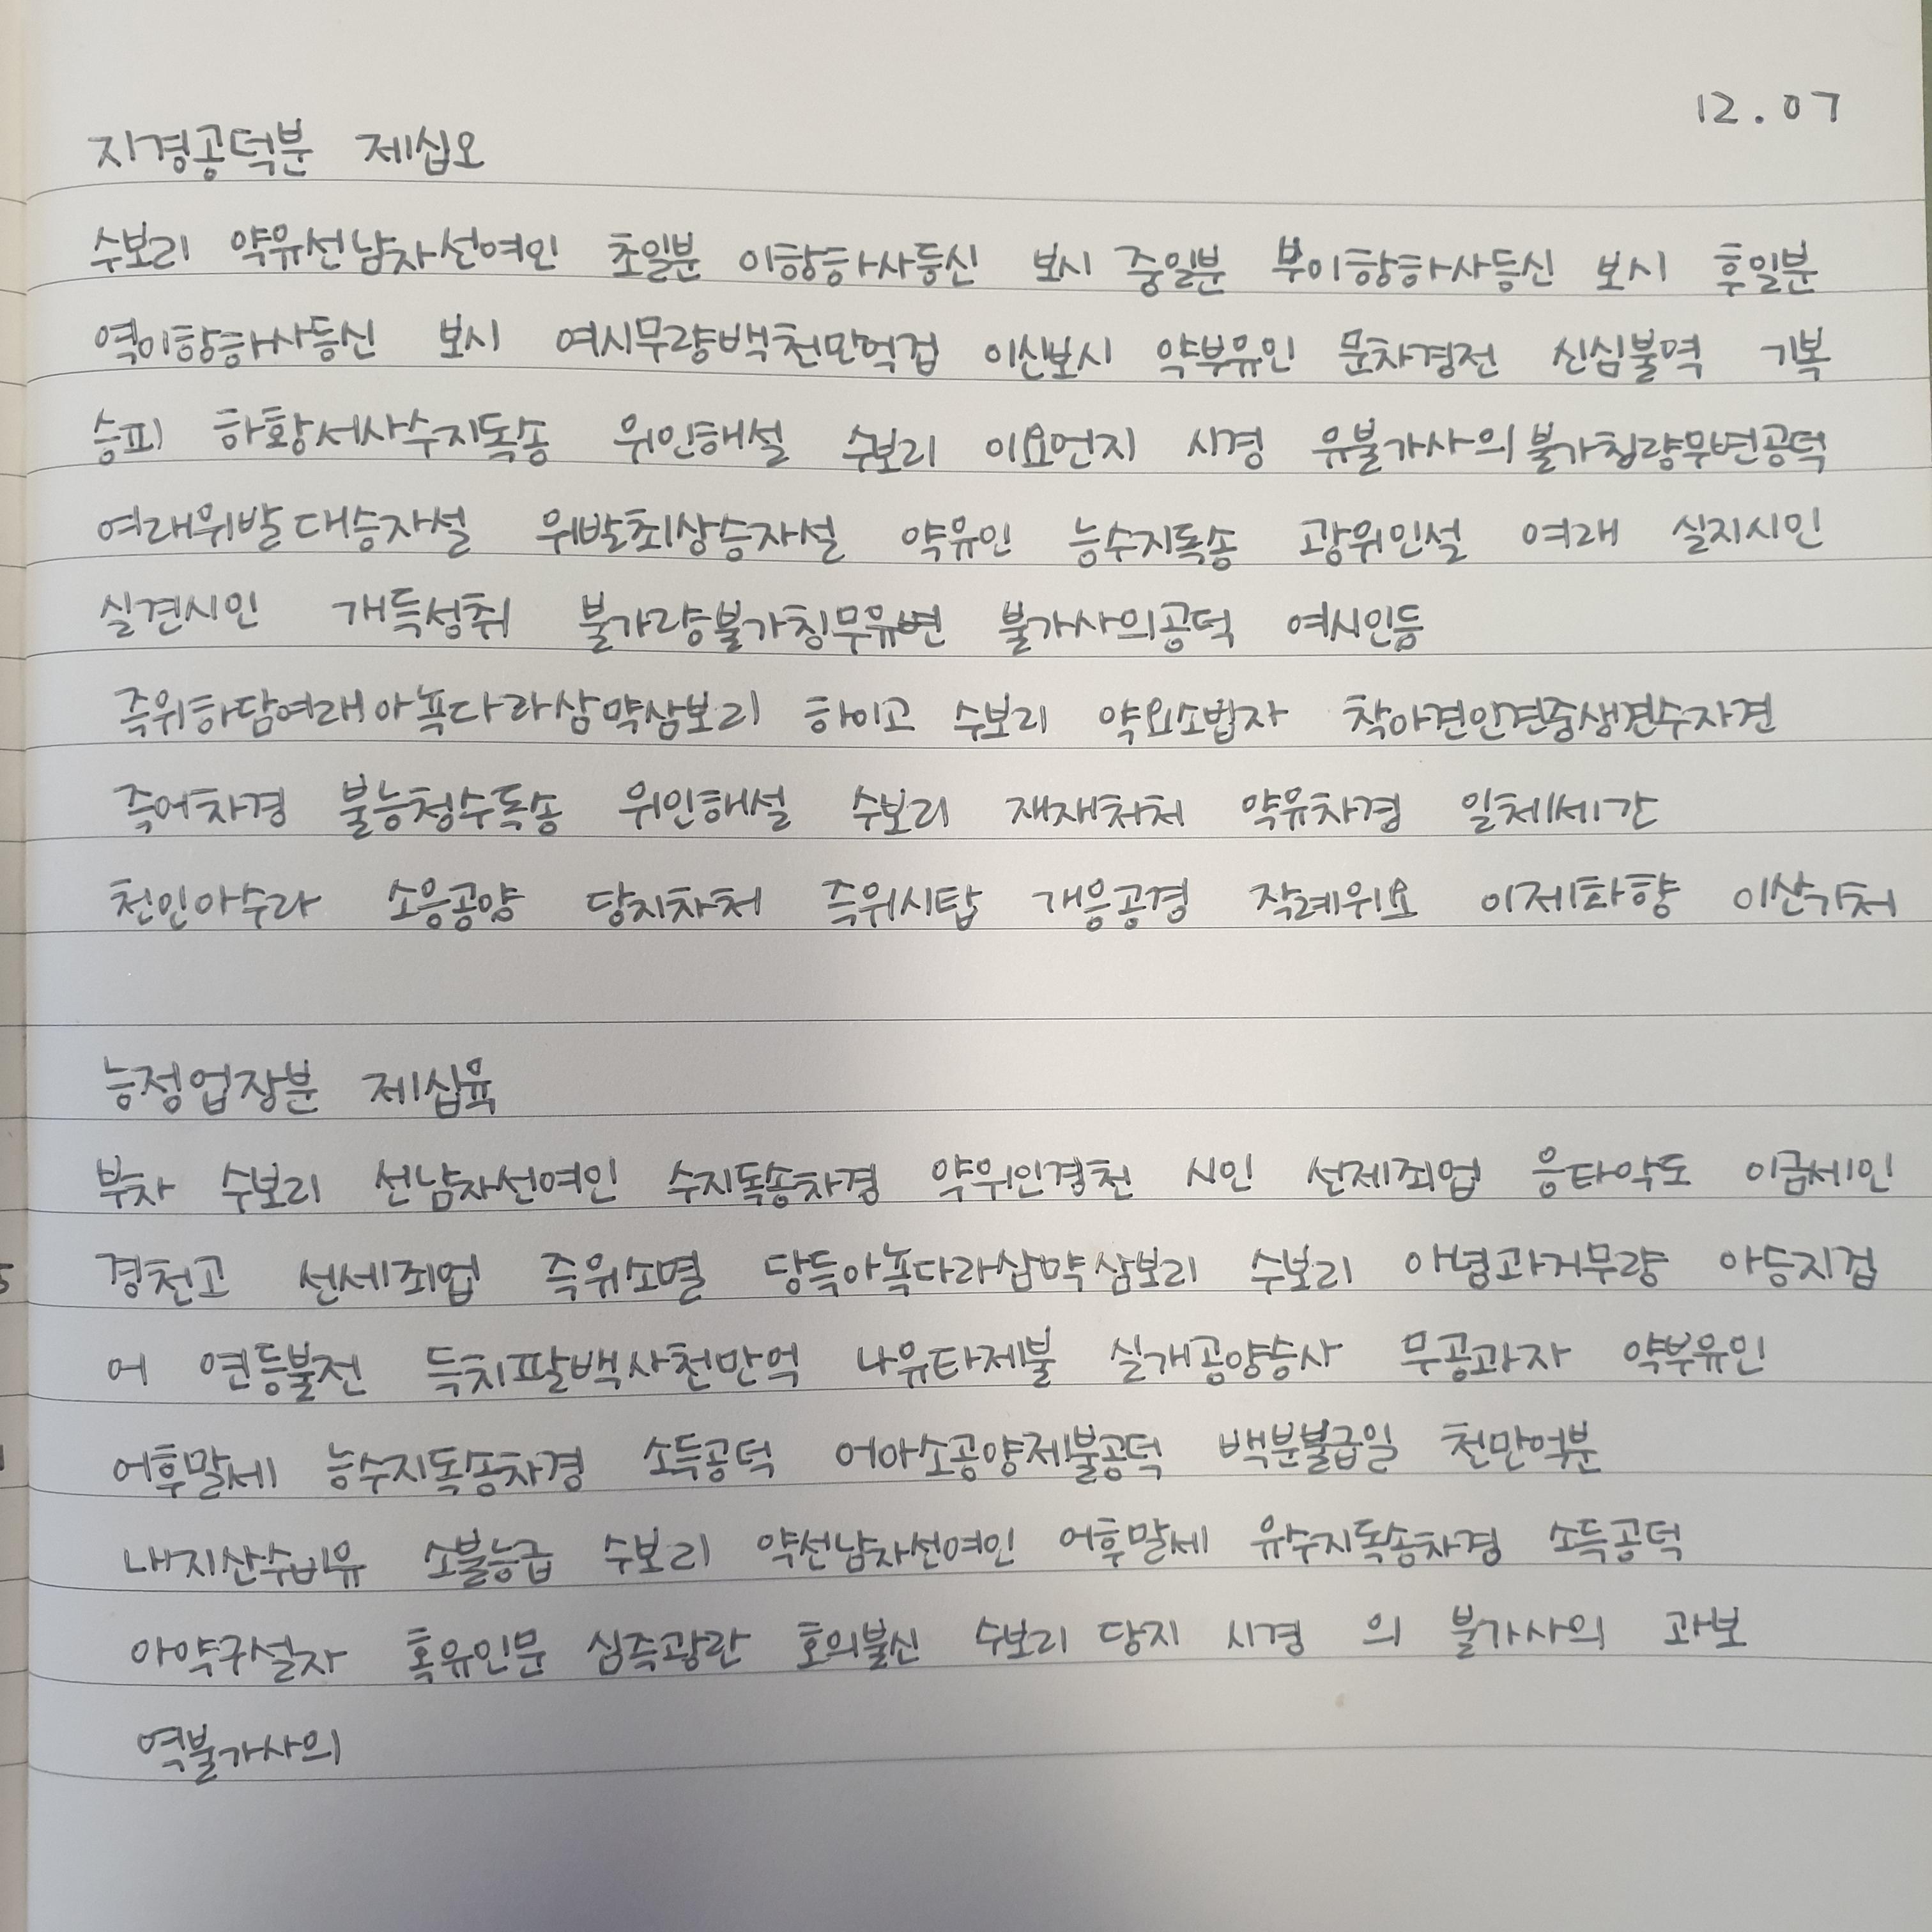 12.07
지경공덕분 제십오
수보리 약유선남자선여인 초일분 이항하사등신 보시 중일분 부이항하사등신 보시 후일분
역이항하사등신 보시 여시무량백천만억겁 이신보시 약부유인 문차경전 신심불역 기복
승피 하황서사수지독송 위인해설 수보리 이요언지 시경 유불가사의불가칭량무변공덕
여래위발대승자설 위발최상승자설 약유인 능수지독송 광위인설 여래 실지시인
실견시인 개득성취 불가량불가칭무유변 불가사의공덕 여시인등
즉위하담여래아뇩다라삼먁삼보리 하이고 수보리 약요소법자 착아견인견중생견수자견
즉어차경 불능청수독송 위인해설 수보리 재재처처 약유차경 일체세간
천인아수라 소응공양 당지차처 즉위시탑 개응공경 작례위요 이제화향 이산기처
능정업장분 제십육
부차 수보리 선남자선여인 수지독송차경 약위인경천 시인 선제죄업 응타악도 이금세인
경천고 선세죄업 즉위소멸 당득아뇩다라삼먁삼보리 수보리 아념과거무량 아승지겁
어 연등불전 득치팔백사천만억 나유타제불 실개공양승사 무공과자 약부유인
어후말세 능수지독송차경 소득공덕 어아소공양제불공덕 백분불급일 천만억분
내지산수비유 소불능급 수보리 약선남자선여인 어후말세 유수지독송차경 소득공덕
아약구설자 혹유인문 심즉광란 호의불신 수보리 당지 시경 의 불가사의 과보
역불가사의